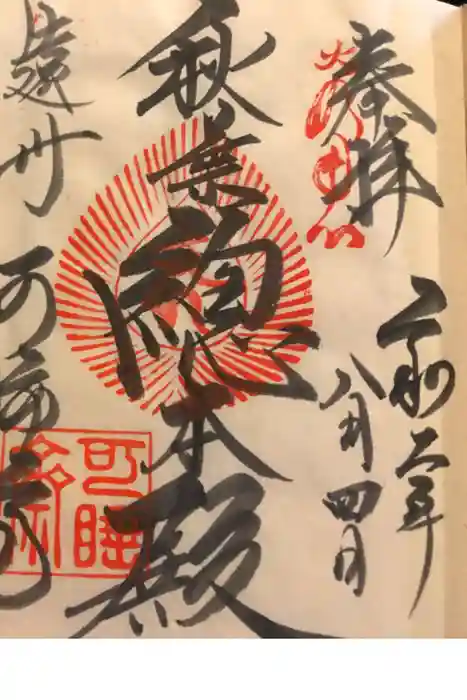 奉拝
令和二年
八月四日
秋葉總本殿
遠州 可睡斎
可睡